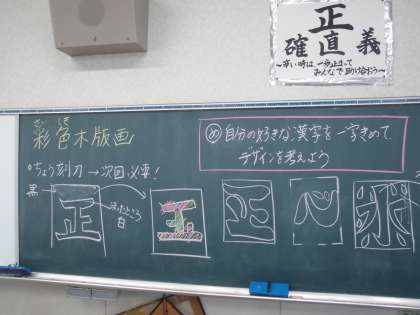 正
確 直 義
～辛い時は、一歩止まって
みんなで助け合おう～
さいしき
彩色木版画
め 自分の好きな漢字を一字きめて、
デザインを考えよう
○ちょう刻刀→次回必要!
黒
正
ほったところ
白
正
正
心